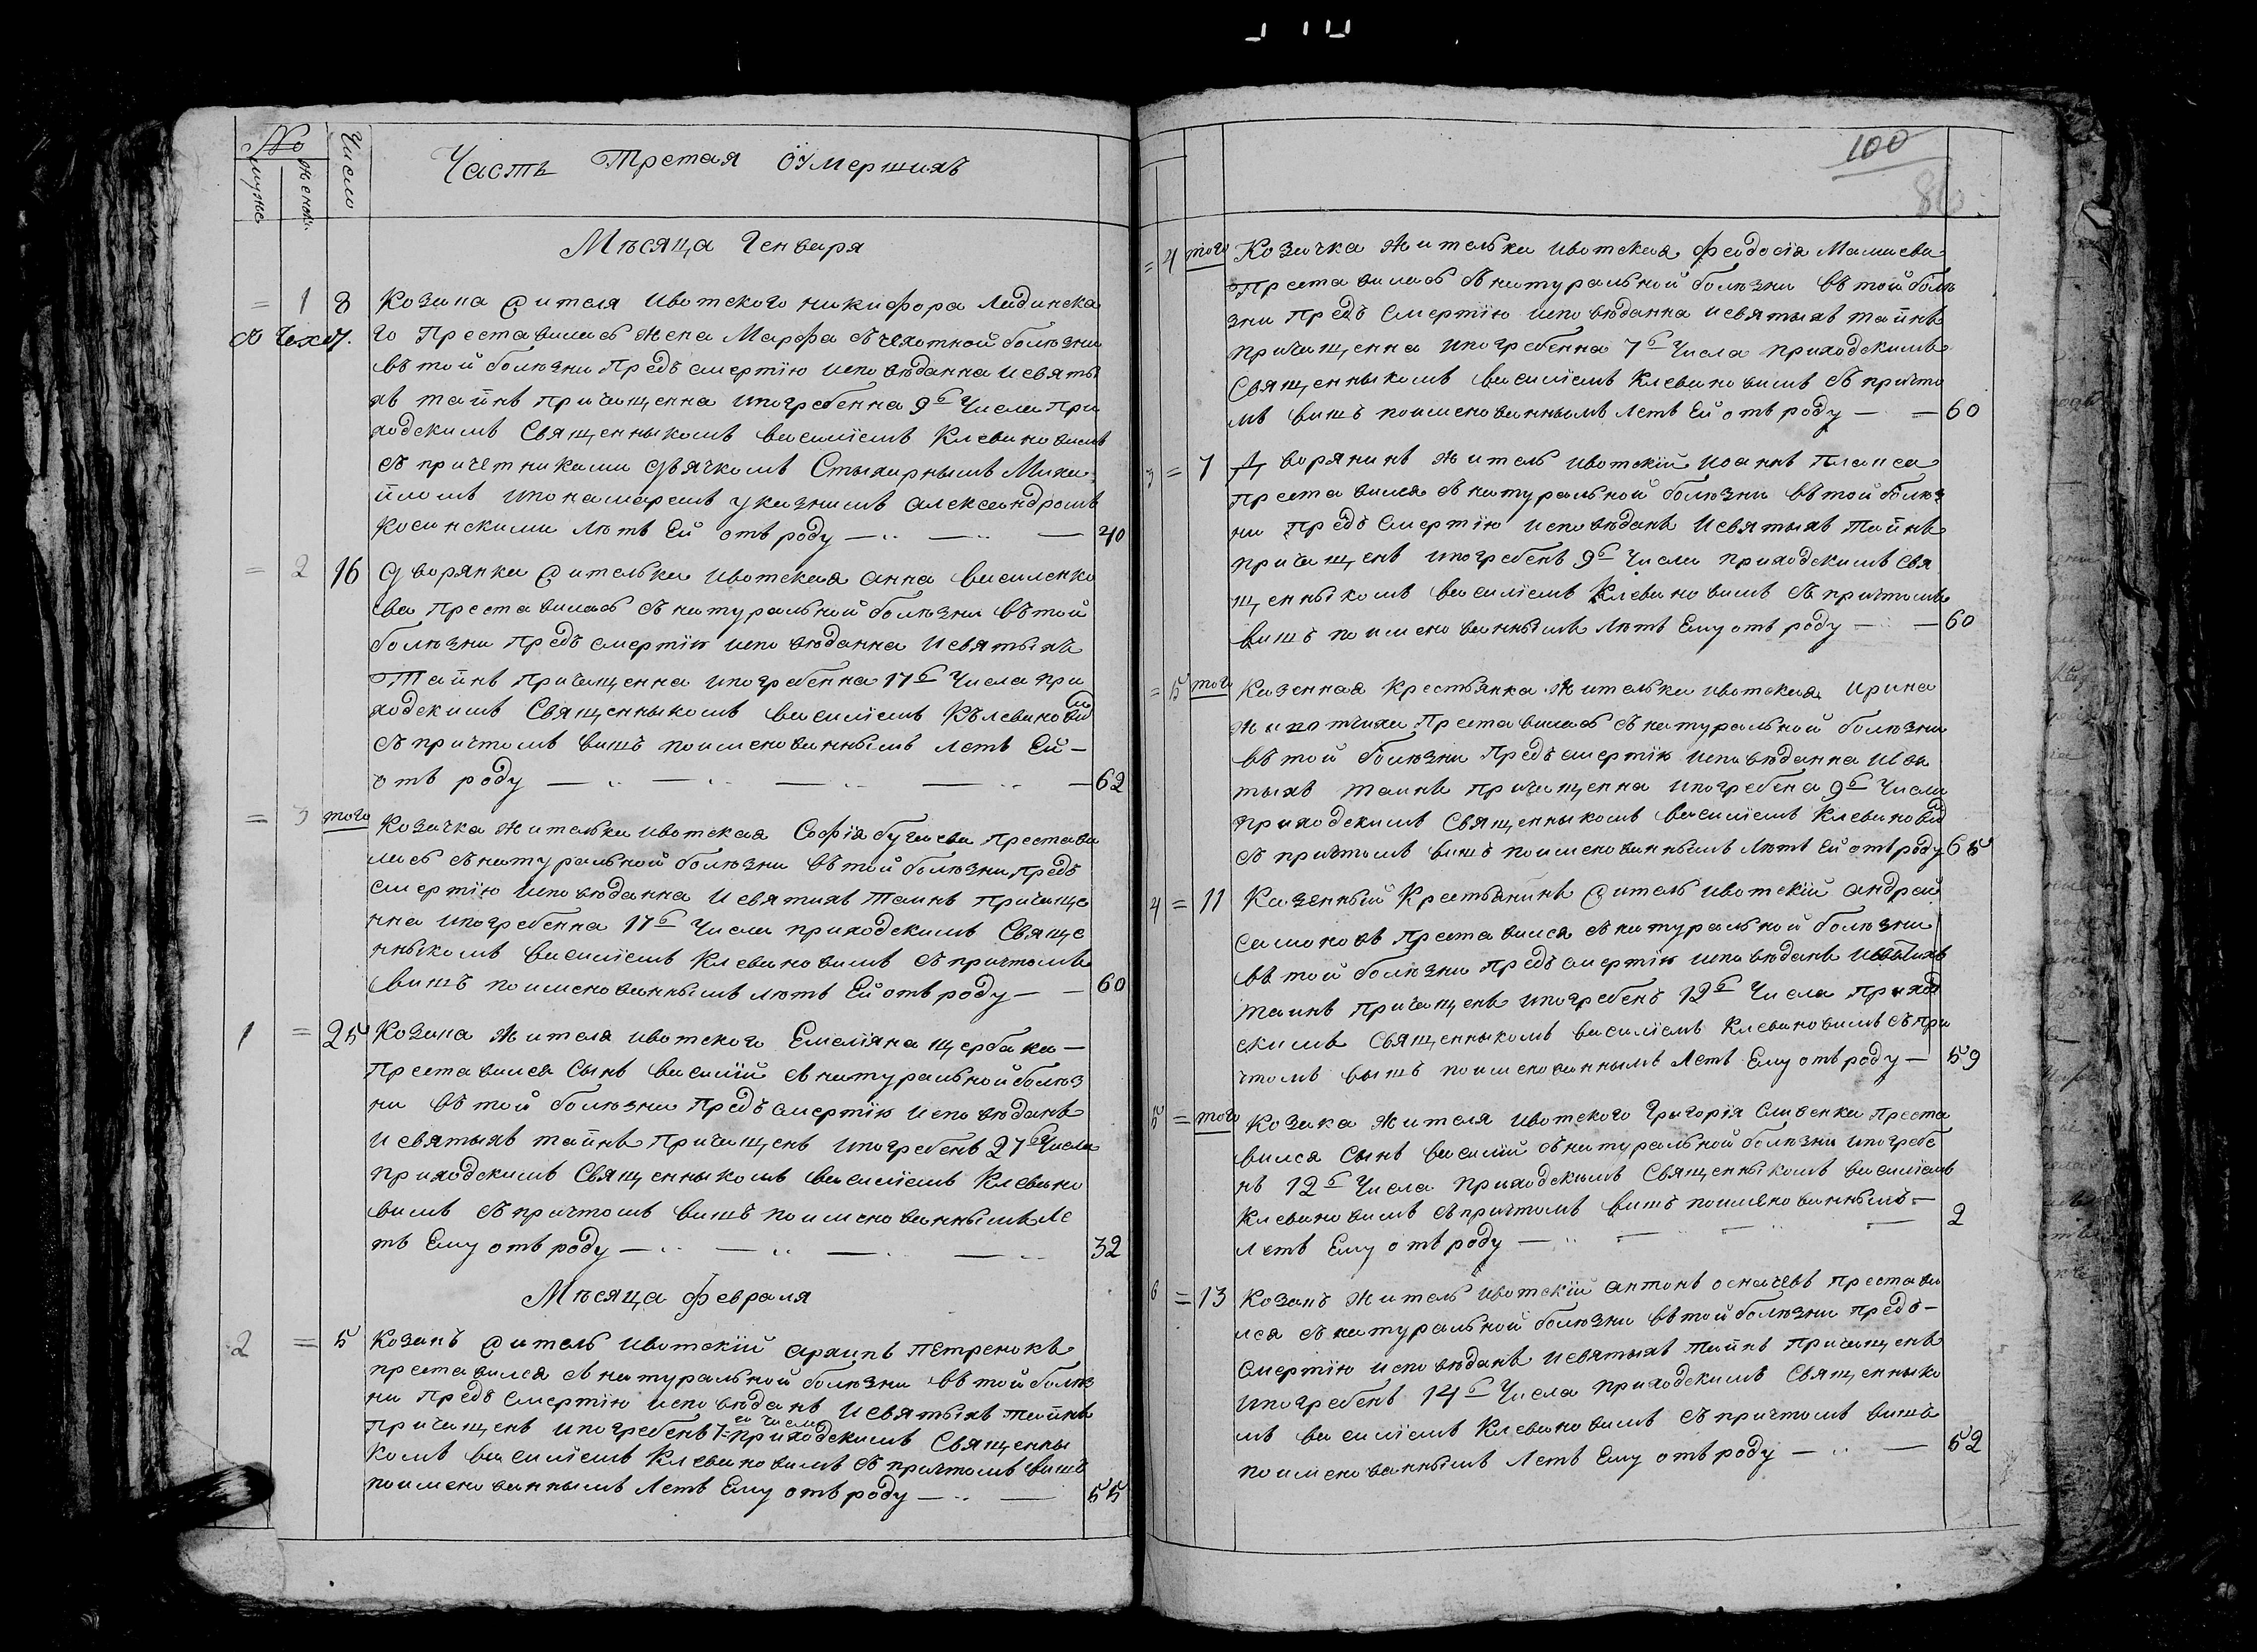 № Число
мужс женс.
Часть Третая О Умершихъ
Мѣсяца Генваря
= 1 8 Козака жителя ивотского никифора Лидинска
го Преставилась жена Марфа съ чехотной болѣзни
въ той болѣзни Предъ смертїю исповѣданна и святы
хъ тайнъ причащенна и погребенна 9го Числа при
ходскимъ Священныкомъ василїемъ Клевановимъ
съ причетниками дьячкомъ Стыхирнымъ Миха
йломъ и пономаремъ указнимъ александромъ
Косинскими лѣтъ Ей отъ роду — 40
= 2 16 дворянка жителька ивотская анна василенко
ва преставилась съ натуральной болѣзни въ той
болѣзни предъ смертїю исповѣданна и святыхъ
Тайнъ причащенна и погребенна 17го Числа при
ходскимъ Священныкомъ василїемъ Клевановим
съ причтомъ вишъ поименованнымъ летъ Ей —
отъ роду — 62
= 3 того Козачка жителька ивотская Софїя бугаева престави
лась съ натуральной болѣзни въ той болѣзни предъ
смертїю исповѣданна и святихъ таинъ причаще
нна и погребенна 17го Числа приходскимъ Свяще
нныкомъ василїемъ Клевановимъ съ причтомъ
вишъ поименованнымъ лѣтъ Ей отъ роду — 60
1 = 25 Козака жителя ивотского Емелїяна щербака —
Преставился Сынъ василїй съ натуральной болѣз
ни въ той болѣзни предъ смертїю исповѣданъ
и святыхъ тайнъ Причащенъ и погребенъ 27го Числа
приходскимъ Священныкомъ василїемъ Клевано
вимъ съ причтомъ вишъ поименованнымъ ле
тъ Ему отъ роду — 32
Мѣсяца февраля
2 = 5 Козакъ житель ивотскїй архипъ Петренокъ
преставился съ натуральной болѣзни въ той болѣз
ни предъ смертїю исповѣданъ и святыхъ тайнъ
причащенъ и погребенъ 7го числа приходскимъ Священны
комъ василїемъ Клевановимъ съ причтомъ вишъ
поименованнымъ летъ Ему отъ роду — 55
100
= 4 того Козачка жителька ивотская феодосїя Мамаева
Преставилась съ натуральной болѣзни въ той болѣ
зни предъ смертїю исповѣданна и святыхъ тайнъ
причащенна и погребенна 7го Числа приходскимъ
Священныкомъ василїемъ Клевановимъ съ причто
мъ вишъ поименованнымъ летъ Ей отъ роду — 60
3 = 7 Дворянинъ житель ивотскїй иоаннъ Плакса
преставился съ натуральной болѣзни въ той болѣз
ни предъ смертїю исповѣданъ и святыхъ тайнъ
причащенъ и погребенъ 9го Числа приходскимъ свя
щенныкомъ василїемъ Клевановимъ съ причтомъ
вишъ поименованнымъ лѣтъ Ему отъ роду — 60
= 5 того Казенная крестьянка жителька ивотская Ирина
преставилась съ натуральной болѣзни
въ той болѣзни предъ смертїю исповѣданна и свя
тыхъ таинъ причащенна и погребена 9го Числа
приходскимъ Священныкомъ василїемъ Клевановим
съ причтомъ вишъ поименованнымъ лѣтъ Ей отъ роду 65
4 = 11 Казенный Крестьянинъ житель ивотскїй андрей
самоновъ преставился съ натуральной болѣзни
въ той болѣзни предъ смертїю исповѣданъ и святихъ
таинъ причащенъ и погребенъ 12го Числа приход
скимъ Священныкомъ василїемъ Клевановимъ съ при
чтомъ вышъ поименованнымъ летъ Ему отъ роду — 59
5 = того Козака жителя ивотского григорїя Сливенка преста
вился сынъ василїй съ натуральной болѣзни и погребе
нъ 12го Числа приходскимъ Священныкомъ василїемъ
Клевановимъ съ причтомъ вишъ поименованнымъ —
летъ Ему отъ роду — 2
6 = 13 Козакъ житель ивотскїй антонъ осначевъ престави
лся съ натуральной болѣзни въ той болѣзни предъ —
смертїю исповѣданъ и святыхъ тайнъ причащенъ
и погребенъ 14го Числа приходскимъ Священныко
мъ василїемъ Клевановимъ съ причтомъ вишъ
поименованнымъ летъ Ему отъ роду — 52